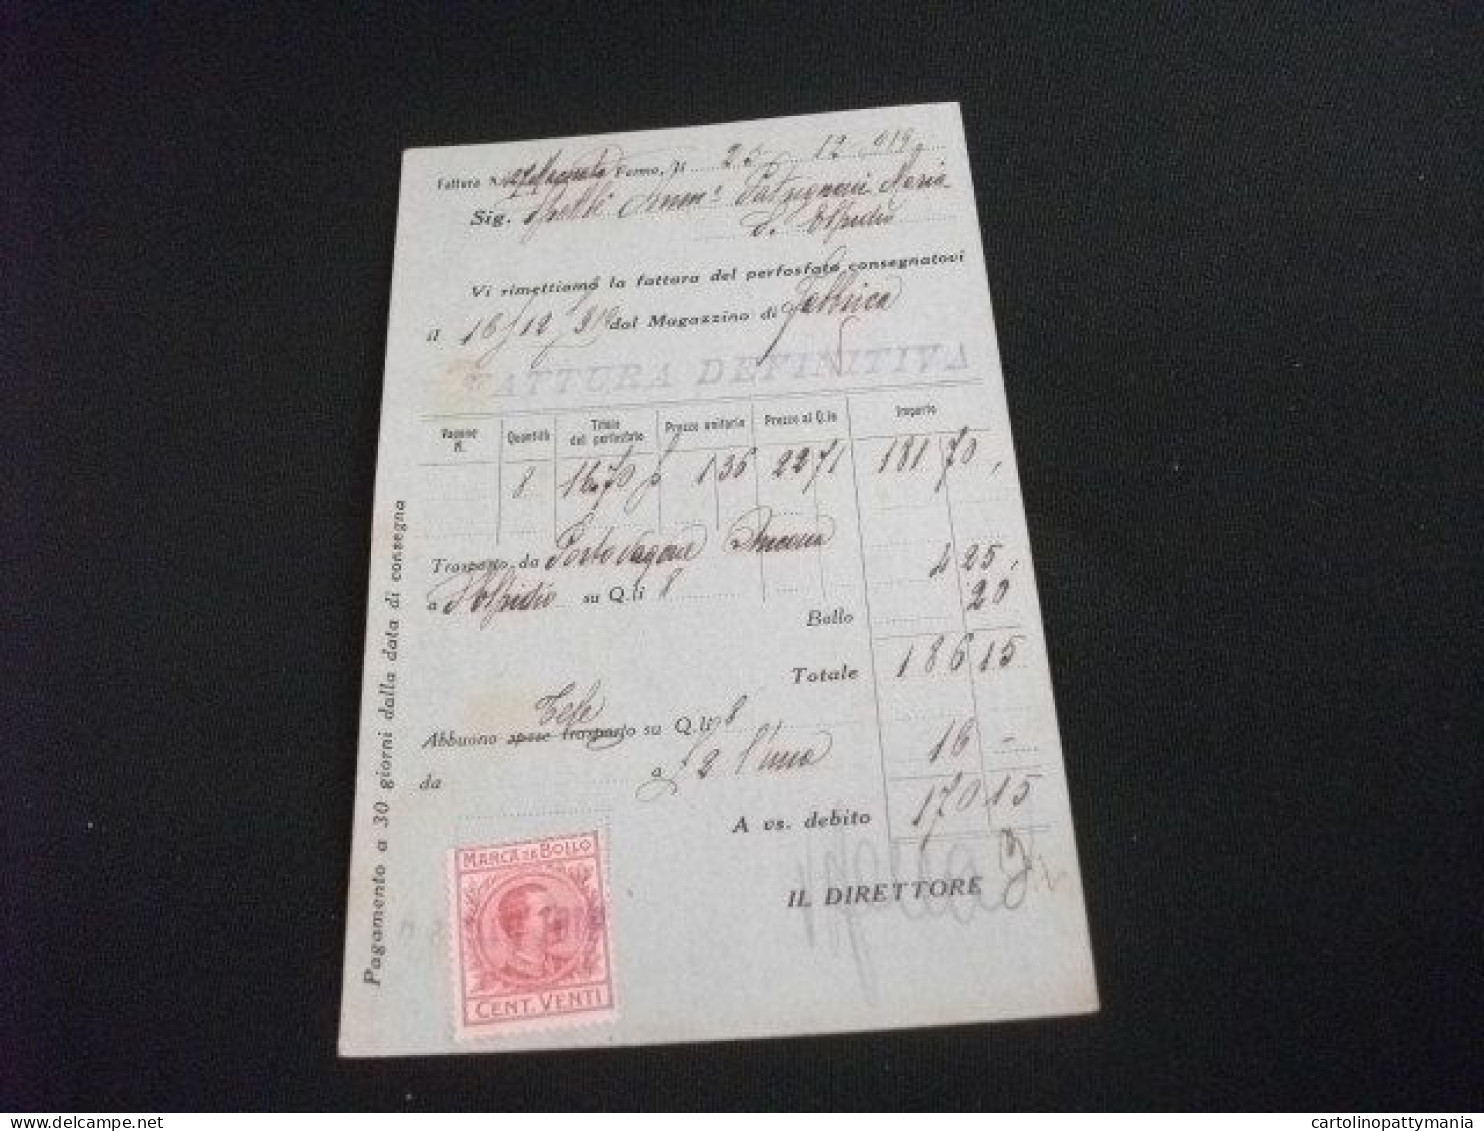 Fattura N. Fermo, li 23 12 919
Sig. Maria
S. Elpidio
Vi rimettiamo la fattura del perfosfato consegnatovi
il 16/12/919 dal Magazzino di Fabbrica
FATTURA DEFINITIVA
Vagone N. Quantità Titolo del perfosfato Prezzo unitario Prezzo al Q.le Importo
8 16.70 1 36 22 71 181 70
Trasporto da Porto vagone Ancona 4 25
a S. Elpidio su Q.li 8
Bollo 20
Totale 186 15
Tele
Abbuono spese trasporto su Q.li 8
da a £ 2 l'una 16 -
A vs. debito 170 15
IL DIRETTORE
Pagamento a 30 giorni dalla data di consegna
MARCA DA BOLLO
CENT. VENTI
cartolinopattymania